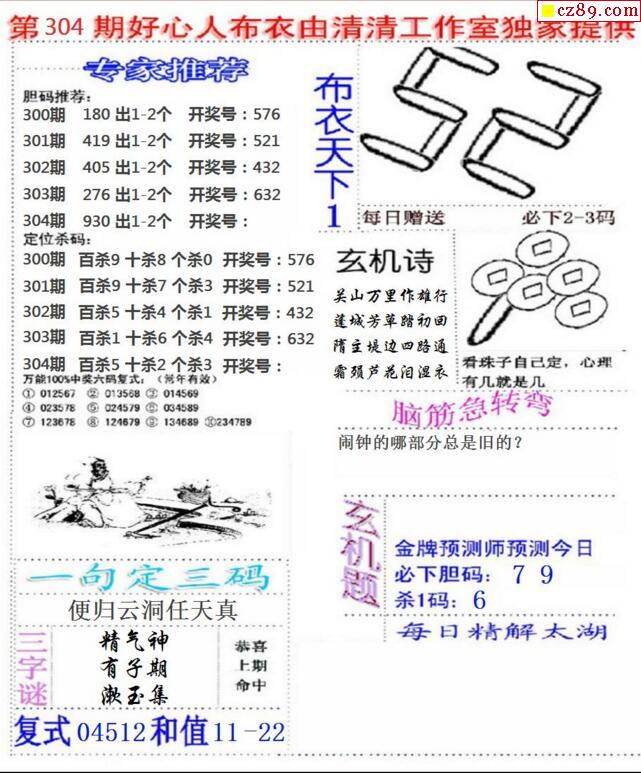 cz89.com
第304期好心人布衣由清清工作室独家提供
专家推荐
胆码推荐:
300期 180 出1-2个 开奖号：576
301期 419 出1-2个 开奖号：521
302期 405 出1-2个 开奖号：432
303期 276 出1-2个 开奖号：632
304期 930 出1-2个 开奖号：
定位杀码:
300期 百杀9 十杀8 个杀0 开奖号：576
301期 百杀9 十杀7 个杀3 开奖号：521
302期 百杀5 十杀4 个杀1 开奖号：432
303期 百杀1 十杀6 个杀4 开奖号：632
304期 百杀5 十杀2 个杀3 开奖号：
万能100%中奖六码复式：（常年有效）
① 012567 ② 013568 ③ 014569
④ 023578 ⑤ 024579 ⑥ 034589
⑦ 123678 ⑧ 124679 ⑨ 134689 ⑩234789
一句定三码
便归云洞任天真
三字谜
精气神
有子期
漱玉集
恭喜
上期
命中
复式04512和值11-22
布衣天下1
每日赠送 必下2-3码
玄机诗
关山万里作雄行
莲城芳草踏初回
隋主堤边四路通
霜颈芦花泪湿衣
看珠子自己定，心理
有几就是几
脑筋急转弯
闹钟的哪部分总是旧的？
玄机题
金牌预测师预测今日
必下胆码：7 9
杀1码：6
每日精解太湖